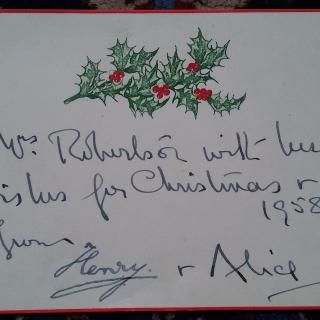 Mrs. Robertson with
for Christmas +
1958
from
Henry. + Alice